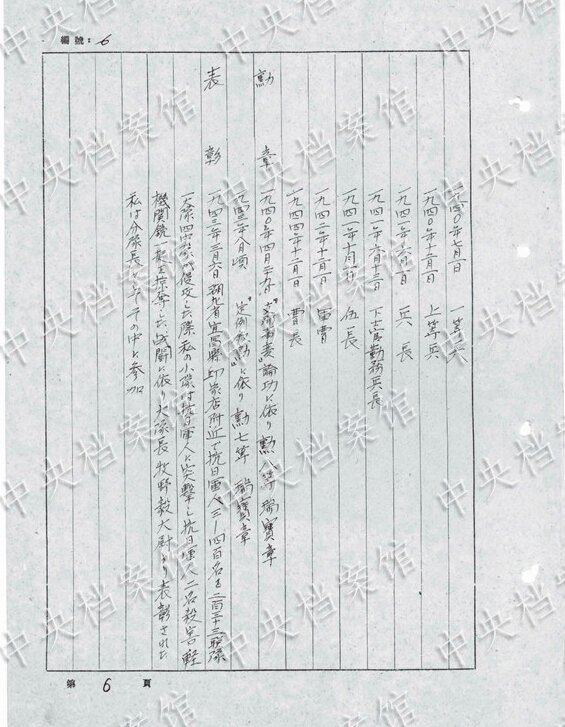 編號:6
一九四〇年七月一日 一等兵
一九四〇年十二月一日 上等兵
一九四一年 月一日 兵長
一九四一年六月十三日 下士官勤務兵長
一九四一年十月一日 伍長
一九四二年十二月一日 軍曹
一九四四年十二月一日 曹長
勳章 一九四〇年四月二十九日 論功に依り 勲八等瑞寶章
一九四三年八月頃 "定例叙勲"に依り 勲七等 瑞寶章
表彰 一九四三年三月六日 湖北省宜昌縣 附近で抗日軍人三ー四百名を二百三十三聯隊
一大隊四 が侵攻した際私の小隊は抗日軍人に突撃し抗日軍人二名殺害軽
機関銃一 を掠奪した戦闘に依り大隊長牧野毅大尉より表彰された
私は分隊長 その中に参加
第6頁
中央档案馆